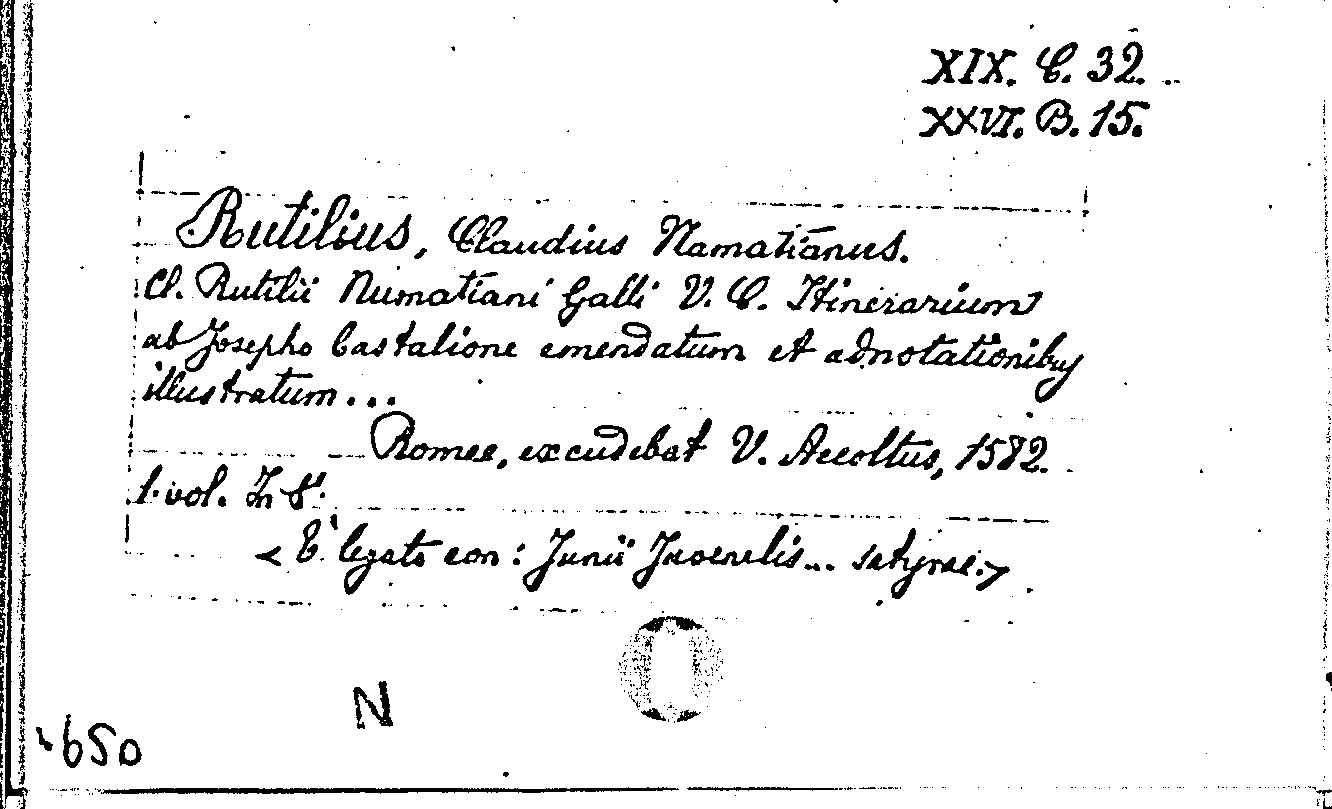 XIX. C. 32.
XXVI. B. 15.
Rutilius, Claudius Namatianus.
Cl. Rutilii Numatiani Galli V. C. Itinerarium
ab Josepho Castalione emendatum et adnotationibus
illustratum...
Romae, excudebat V. Accoltus, 1582.
1. vol. In 8°.
< E' legato con: Junii Juvenalis... satyrae. >
N
650